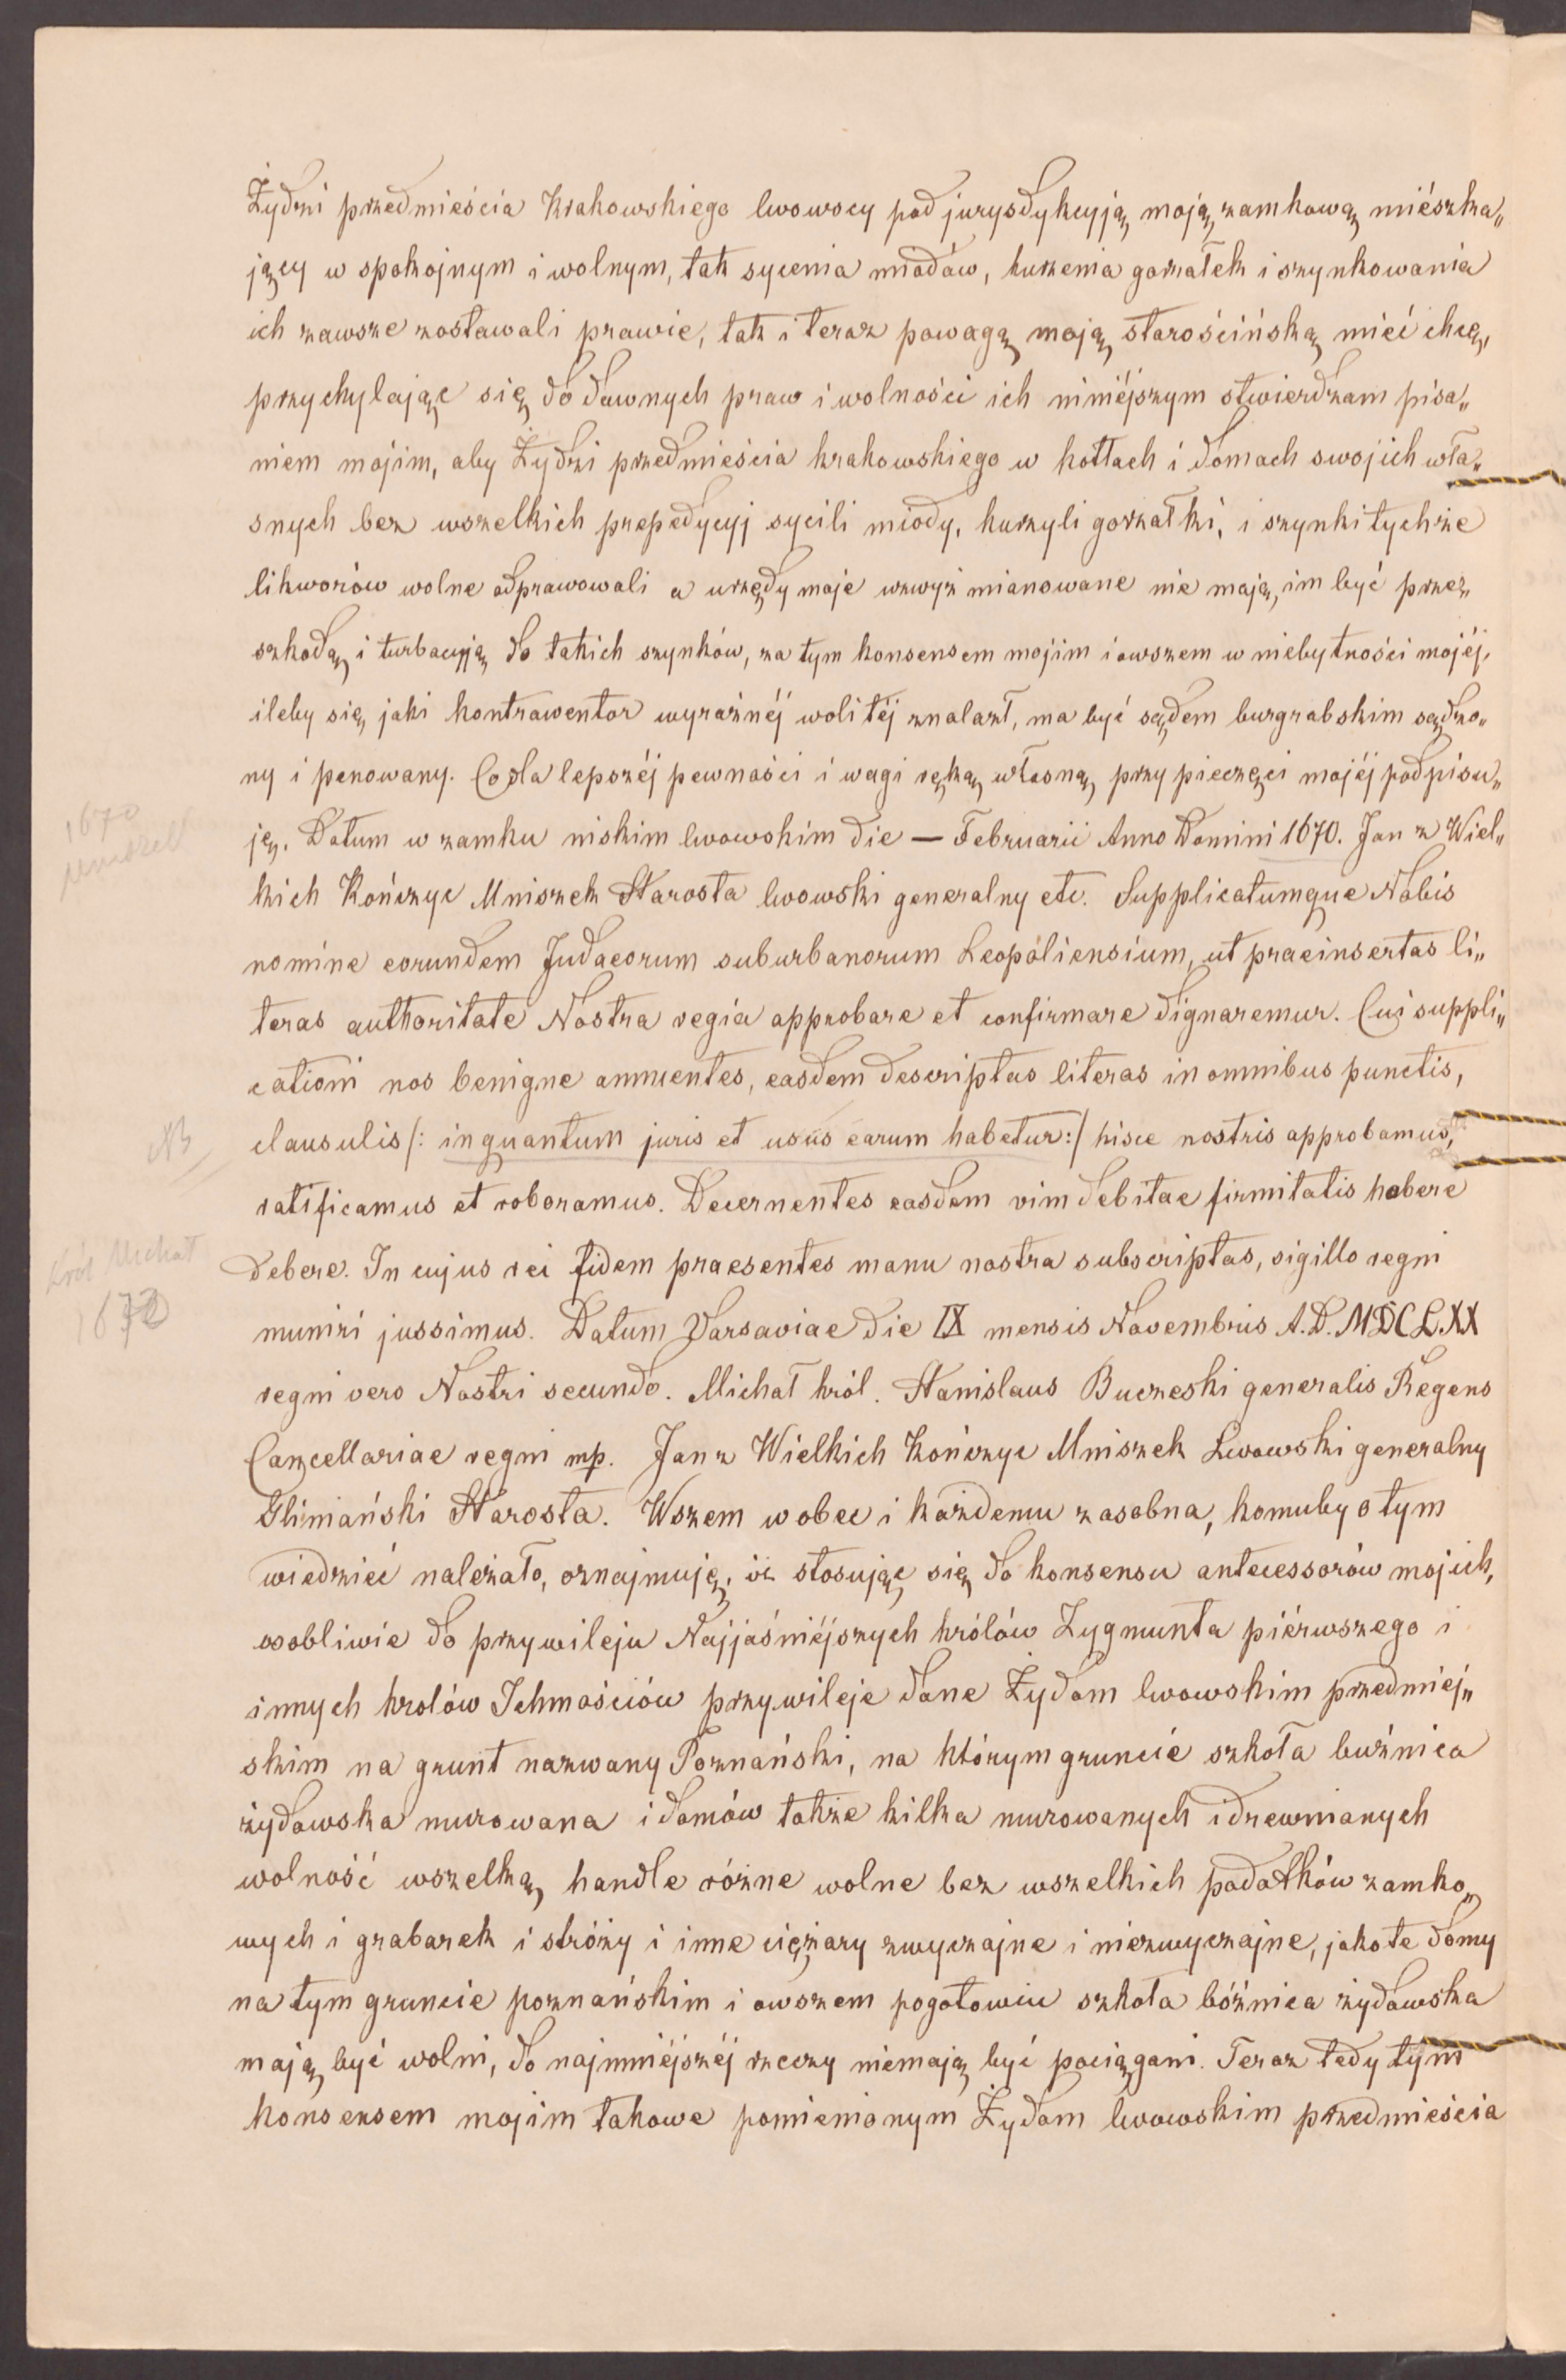 Żydzi przedmieścia Krakowskiego lwowscy pod jurysdykcyją moją zamkową miészka„
jący w spokojnym i wolnym, tak sycenia miodów, kurzenia gorzałek i szynkowania
ich zawsze zostawali prawie, tak i teraz powagą moją starościńską mieć chcę,
przychylając się do dawnych praw i wolności ich niniéjszym stwierdzam pisa„
niem mojim, aby Żydzi przedmieścia krakowskiego w kotłach i domach swojich wła„
snych bez wszelkich prepedycyj sycili miody, kurzyli gorzałki, i szynki tychże
likworów wolne odprawowali a urzędy moje wzwyż mianowane nie mają im być prze„
szkodą i turbacyją do takich szynków, za tym konsensem mojim i owszem w niebytności mojéj,
ileby się jaki kontrawentor wyraźnéj woli téj znalazł, ma być sądem burgrabskim sądzo„
ny i penowany. Co dla lepszéj pewności i wagi ręką własną przy pieczęci mojéj podpisu„
ję. Datum w zamku niskim lwowskim die — Februarii Anno Domini 1670. Jan z Wiel„
kich Kończyc Mniszek Starosta lwowski generalny etc. Supplicatumque Nobis
nomine eorundem Judaeorum suburbanorum Leopoliensium, ut praeinsertas li„
teras authoritate Nostra regia approbare et confirmare dignaremur. Cui suppli„
cationi nos benigne annuentes, easdem descriptas literas in omnibus punctis,
clausulis /: inquantum juris et usus earum habetur :/ hisce nostris approbamus,
ratificamus et roboramus. Decernentes easdem vim debitae firmitatis habere
debere. In cujus rei fidem praesentes manu nostra subscriptas, sigillo regni
muniri jussimus. Datum Varsaviae die IX mensis Novembris A.D. MDCLXX
regni vero Nostri secundo. Michał król. Stanislaus Buczeski generalis Regens
Cancellariae regni mp. Jan z Wielkich Kończyc Mniszek Lwowski generalny
Gliniański Starosta. Wszem wobec i każdemu zasobna, komuby o tym
wiedzieć należało, oznajmuję, iż stosując się do konsensu antecessorów mojich,
osobliwie do przywileju Najjaśniéjszych królów Zygmunta piérwszego i
innych krolów Ichmościów przywileje dane Żydom lwowskim przedmiej„
skim na grunt nazwany Poznański, na którym gruncie szkoła bużnica
żydowska murowana i domów także kilka murowanych i drewnianych
wolność wszelką, handle różne wolne bez wszelkich podatków zamko„
wych i grabarek i stróży i inne ciężary zwyczajne i niezwyczajne, jako te domy
na tym gruncie poznańskim i owszem pogotowiu szkoła bóżnica żydowska
mają być wolni, do najmniéjszéj rzeczy niemają być pociągani. Teraz tedy tym
konsensem mojim takowe pomienionym Żydom lwowskim przedmieścia
1670
NB
Król Michał